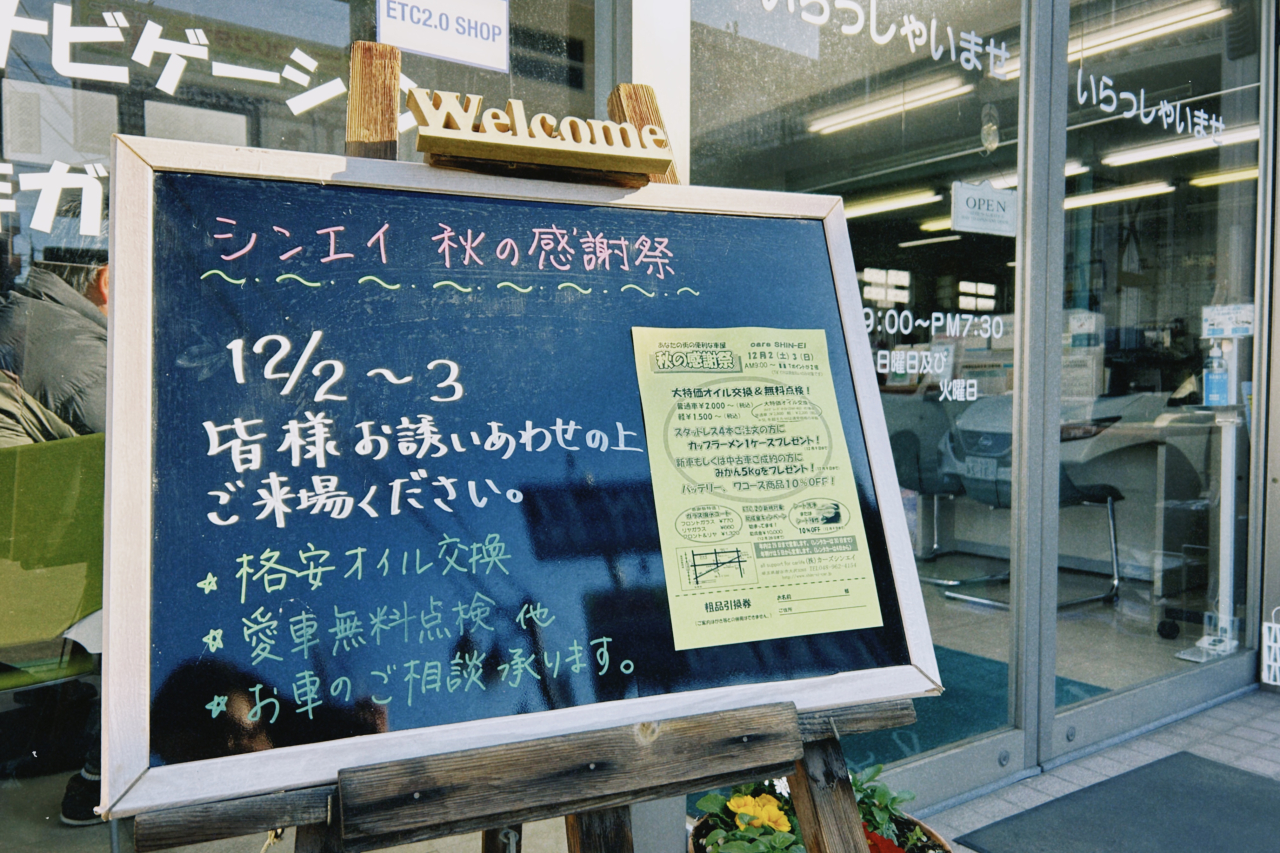 ETC2.0 SHOP
ナビゲーシ
Welcome
いらっしゃいませ
いらっしゃいませ
OPEN
9:00～PM7:30
日曜日及び
火曜日
シンエイ 秋の感謝祭
12/2～3
皆様お誘いあわせの上
ご来場ください。
☆格安オイル交換
☆愛車無料点検 他
☆お車のご相談承ります。
あなたの街の便利な車屋 care SHIN-EI
秋の感謝祭 12月2(土)3(日)
AM9:00～
大特価オイル交換&無料点検!
普通車¥2,000～(税込)
軽¥1,500～(税込)
大特価オイル交換
スタッドレス4本ご注文の方に
カップラーメン1ケースプレゼント!
新車もしくは中古車ご成約の方に
みかん5kgをプレゼント!
バッテリー、ワコーズ商品10%OFF!
フロントガラス ¥770
リヤガラス ¥660
フロント&リヤ
10%OFF
粗品引換券
お名前 様
ご住所